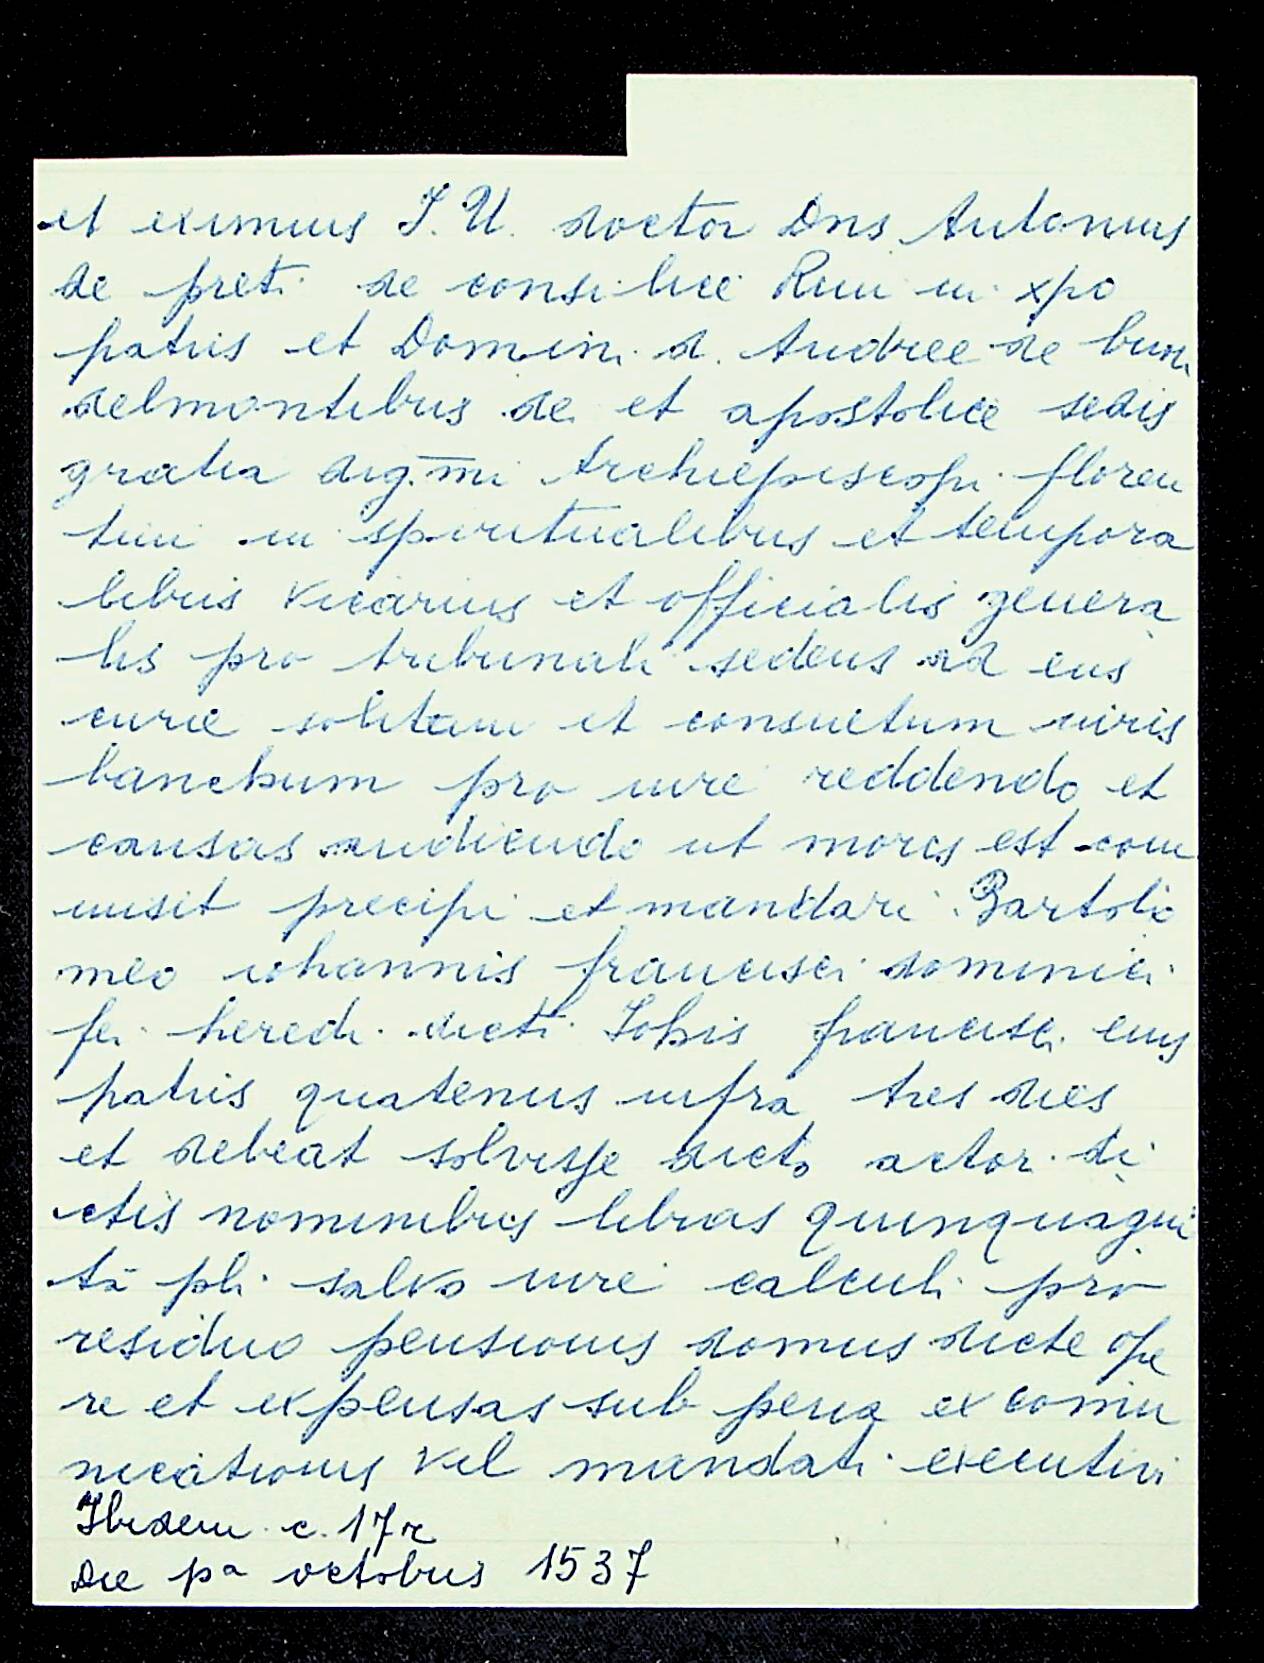 et eximius J. U. doctor Dns Antonius
de preti de consilice Rmi in xpo
patris et Domini d. Andree de bun
delmontibus dei et apostolice sedis
gratia dig.mi Archiepiscopi floren
tini in spiritualibus et tempora
libus vicarius et officialis genera
lis pro tribunali sedens ad eius
curie solitum et consuetum iuris
banchum pro iure reddendo et
causas audiendo ut moris est com
misit precipi et mandari Bartolo
meo iohannis francisci dominici
fei heredi dicti Johis francisci eius
patris quatenus infra tres dies
et debeat solvisse dicto actor. di
ctis nominibus libras quinquagin
ta pli salvo iure calculi pro
residuo pensionis domus dicte ope
re et expensas sub pena excomu
nicationis vel mandati executivi
Ibidem c. 17r
Die pa octobris 1537